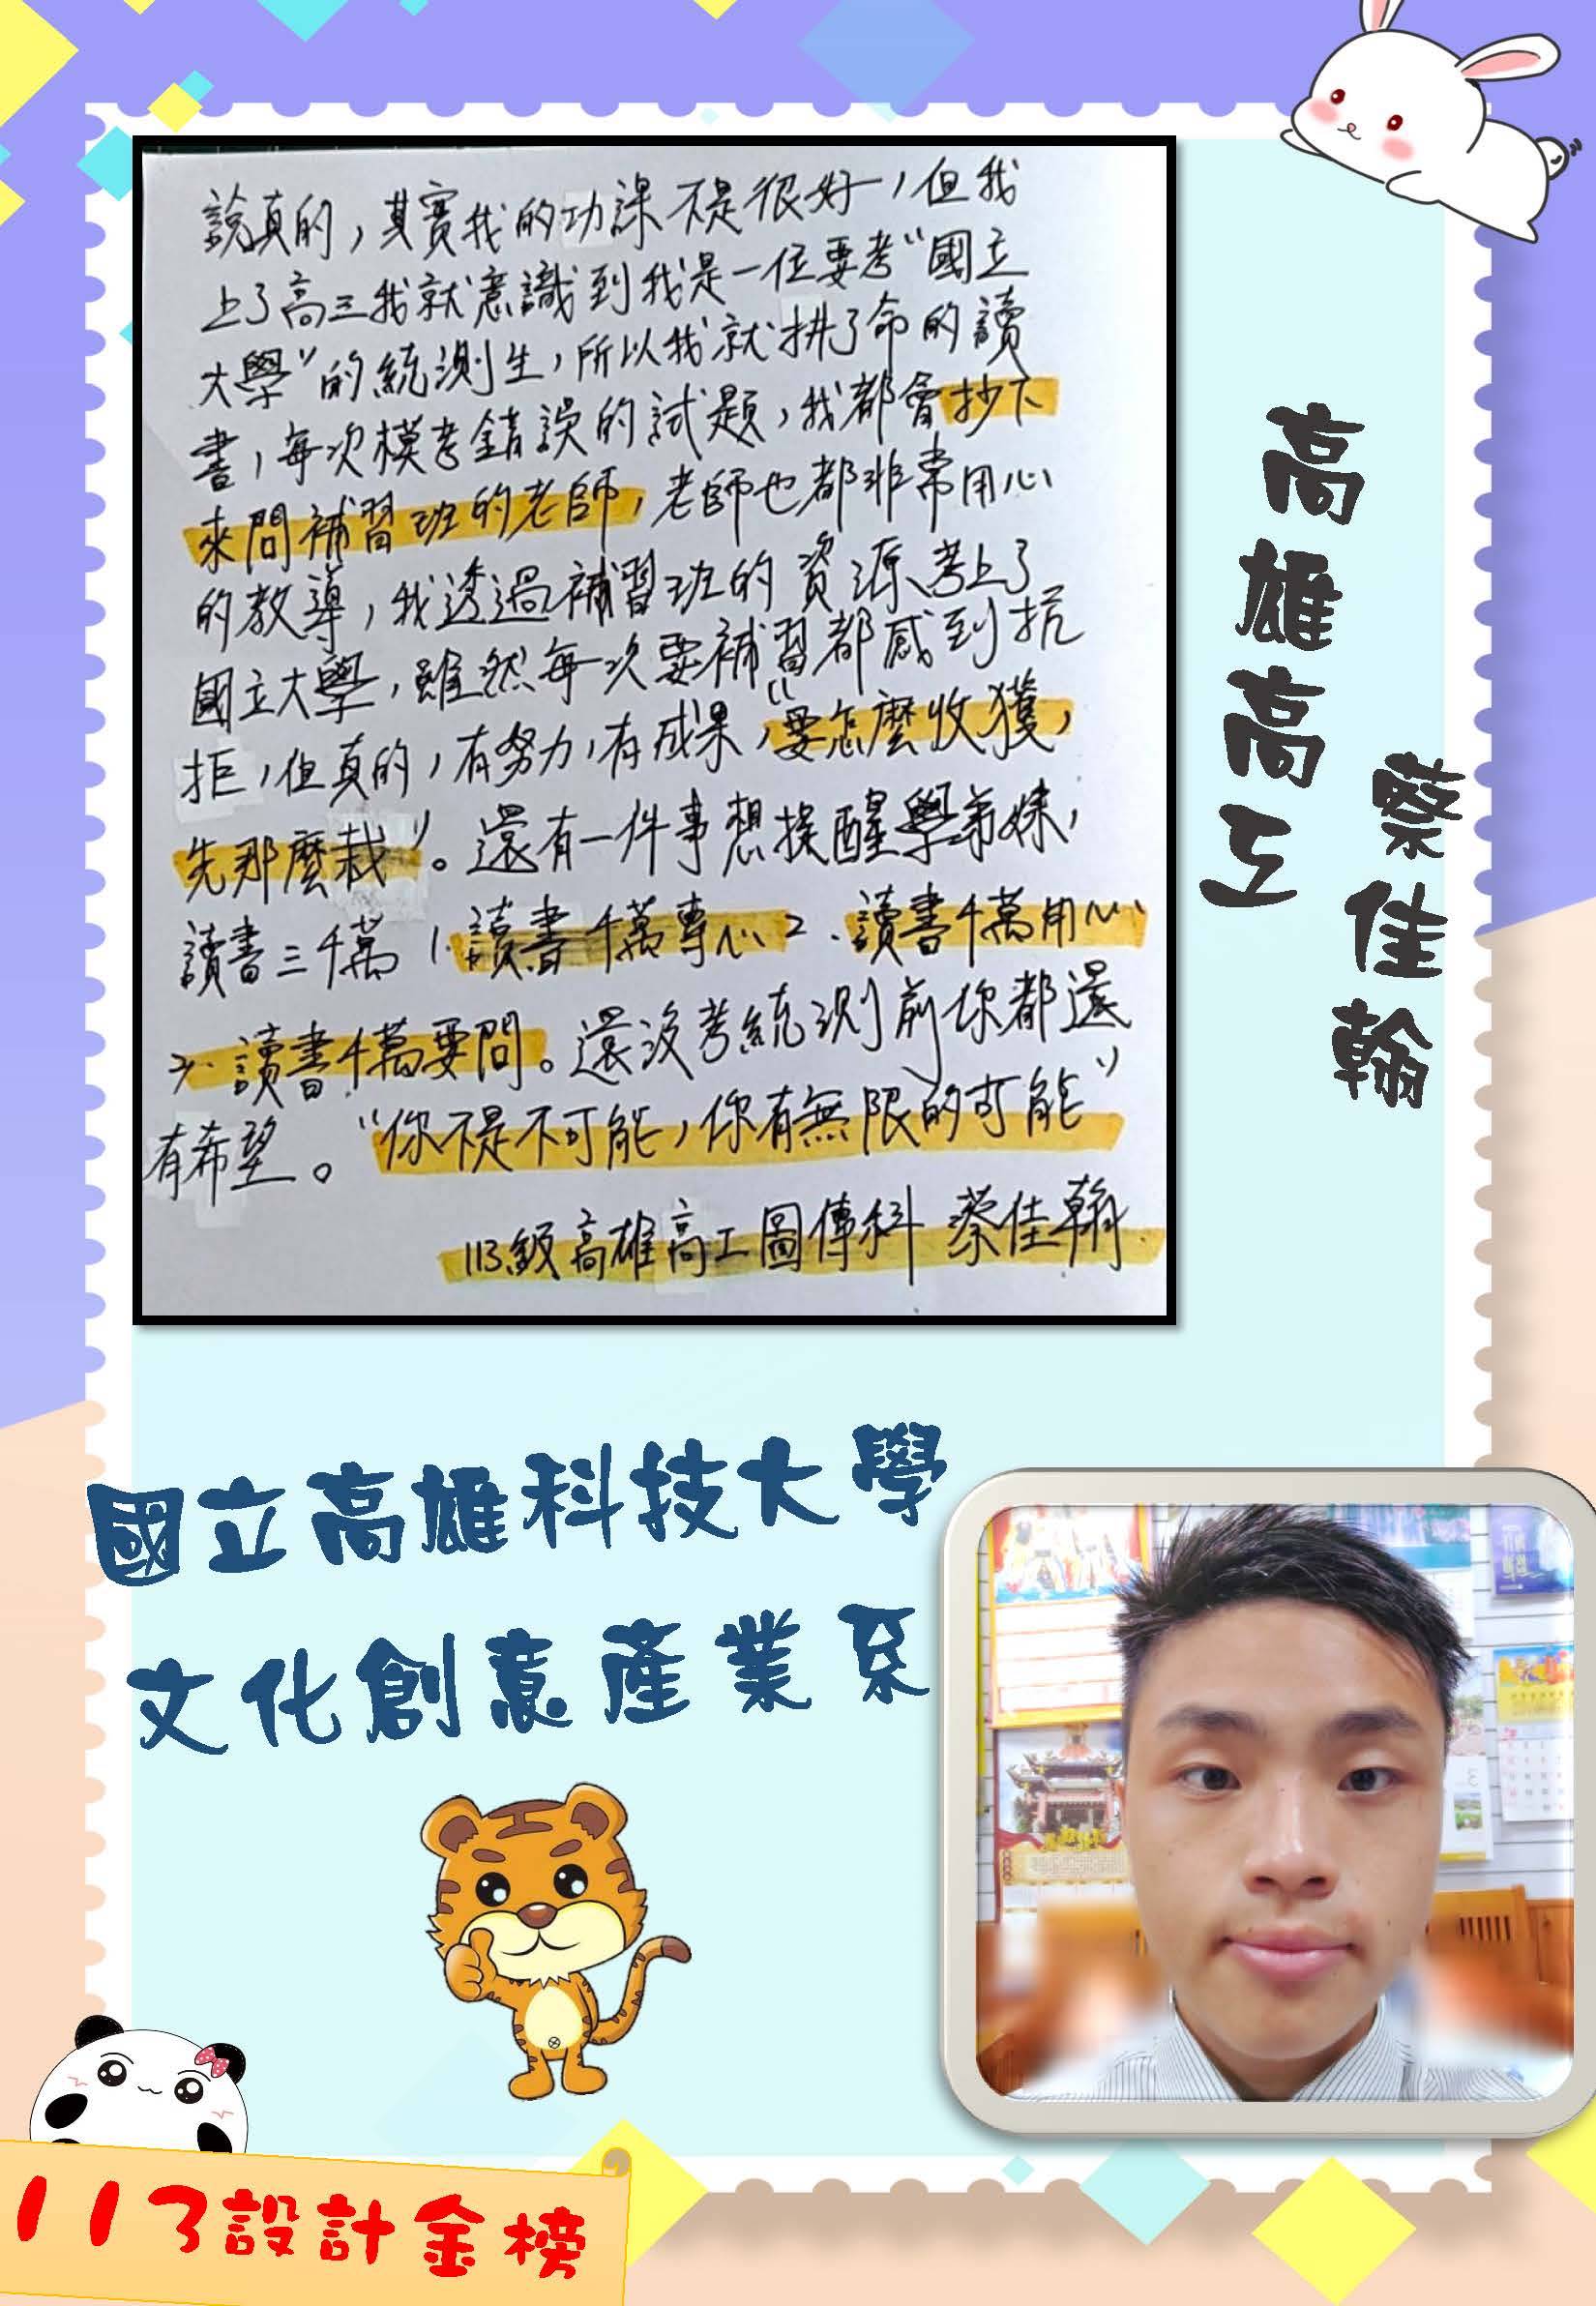 說真的，其實我的功課不是很好，但我
上了高三我就意識到我是一位要考“國立
大學”的統測生，所以我就拼了命的讀
書，每次模考錯誤的試題，我都會抄下
來問補習班的老師，老師也都非常用心
的教導，我透過補習班的資源考上了
國立大學，雖然每一次要補習都感到抗
拒，但真的，有努力，有成果，“要怎麼收獲，
先那麼栽”。還有一件事想提醒學弟妹，
讀書三千萬 1.讀書千萬專心 2.讀書千萬用心
3.讀書千萬要問。還沒考統測前你都還
有希望。“你不是不可能，你有無限的可能”
113級高雄高工圖傳科 蔡佳翰
高雄高工
蔡佳翰
國立高雄科技大學
文化創意產業系
113設計金榜